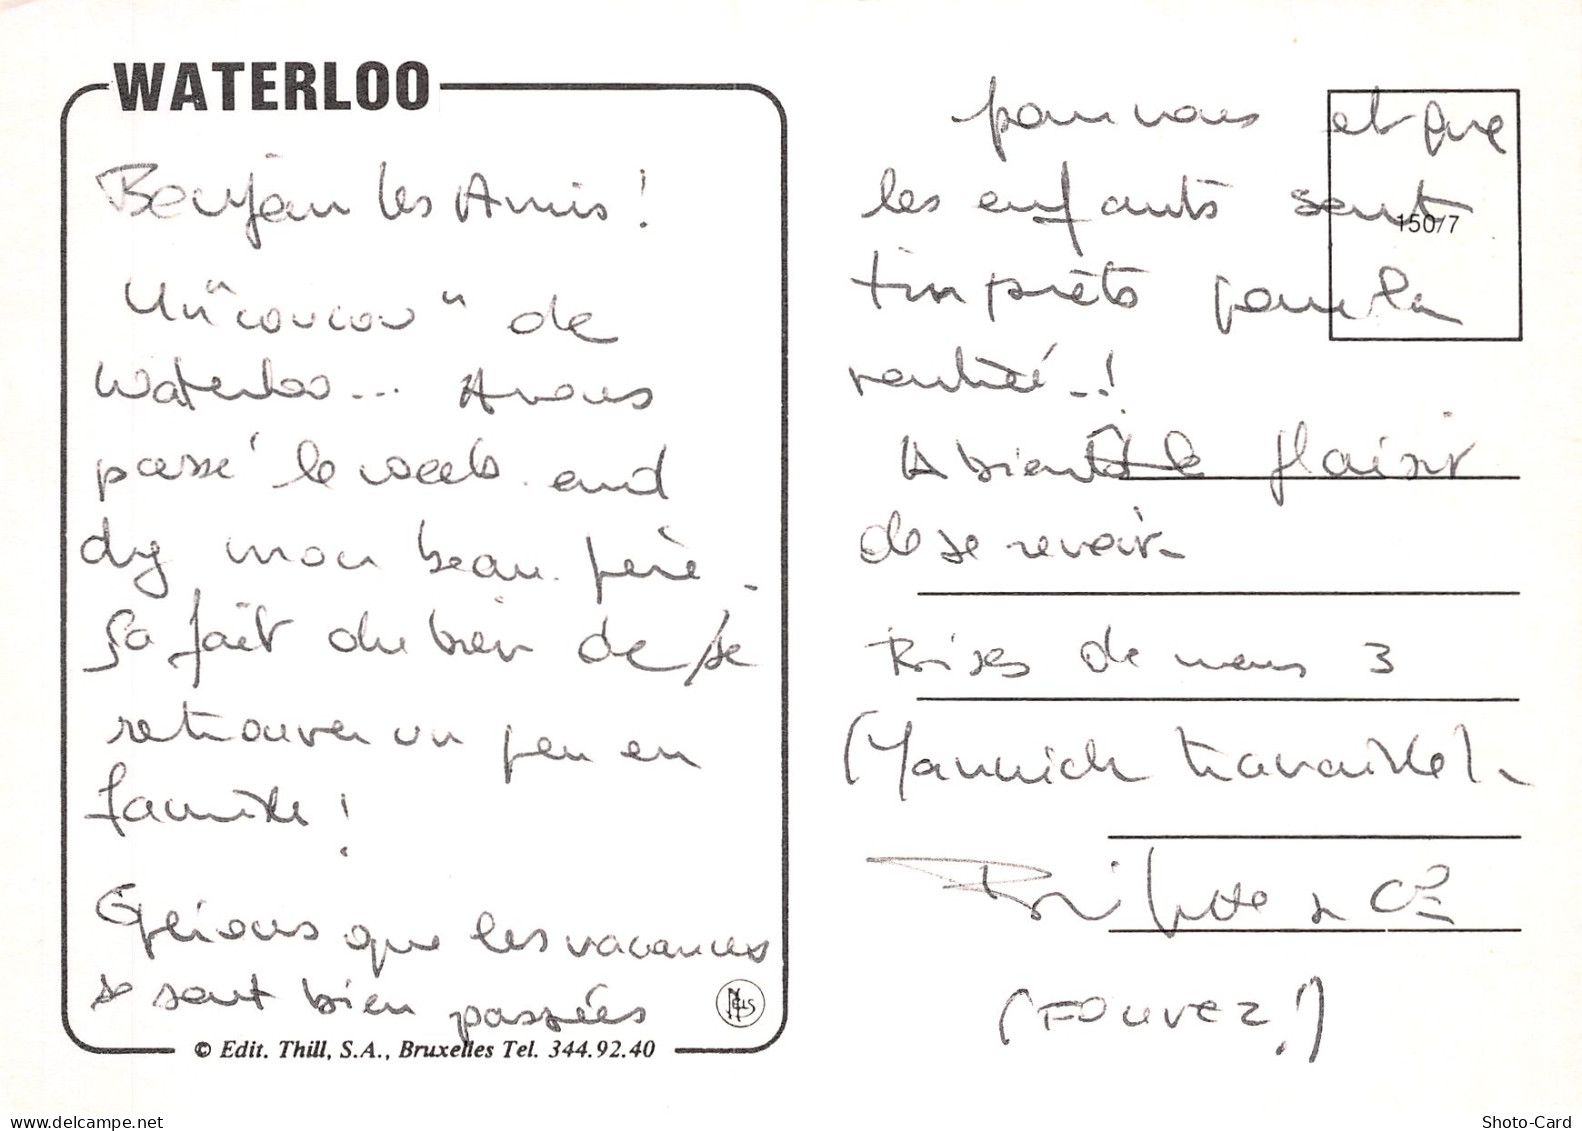 WATERLOO
Bonjour les Amis !
Un "coucou" de
Waterloo... Avons
passé le week-end
chez mon beau-père.
Ça fait du bien de se
retrouver un peu en
famille !
Espérons que les vacances
se sont bien passées
© Edit. Thill, S.A., Bruxelles Tel. 344.92.40
pour vous et que
les enfants sont
fin prêts pour la
rentrée..!
150/7
A bientôt le plaisir
de se revoir.
Bises de nous 3
(Yannick travaille).
Brigitte & Cie
delcampe.net
Shoto-Card